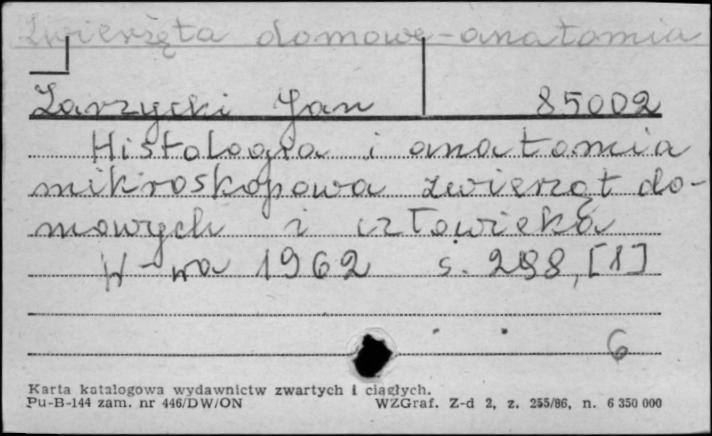 Zwierzęta domowe - anatomia
Zarzycki Jan 85002
Histologia i anatomia
mikroskopowa zwierząt do-
mowych i człowieka
W-wa 1962 s. 298, [1]
6
Karta katalogowa wydawnictw zwartych i ciągłych.
Pu-B-144 zam. nr 446/DW/ON WZGraf. Z-d 2, z. 255/86, n. 6 350 000